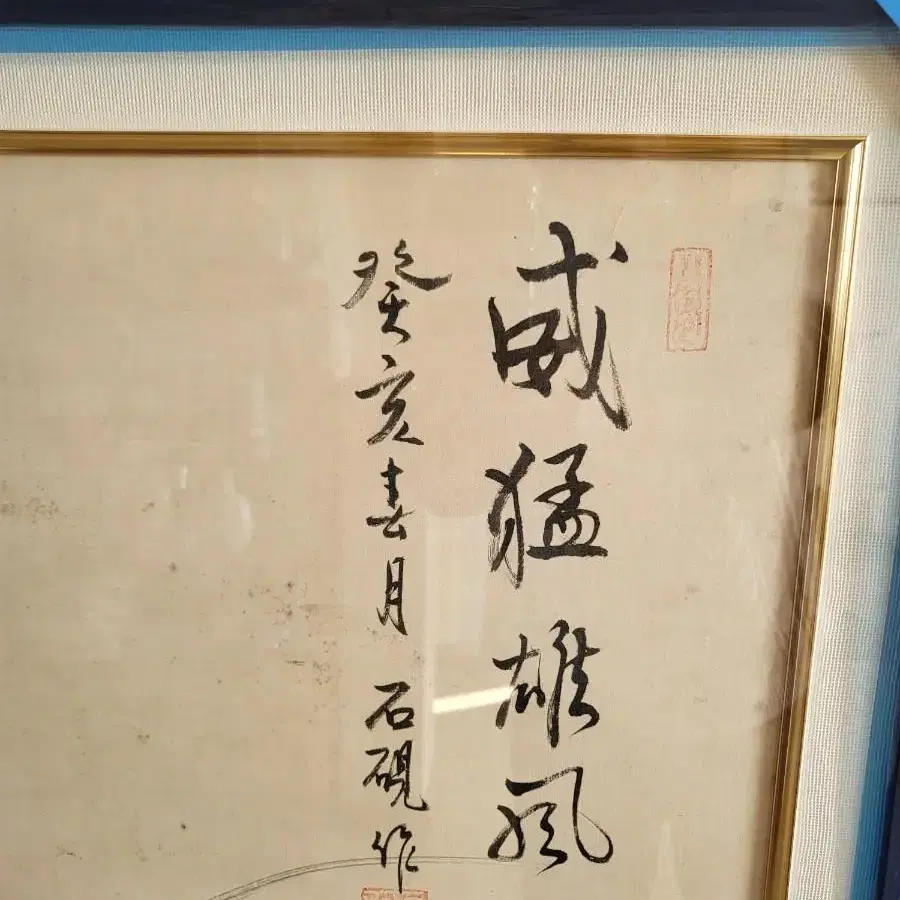 威猛雄風
癸亥春月 石硯作